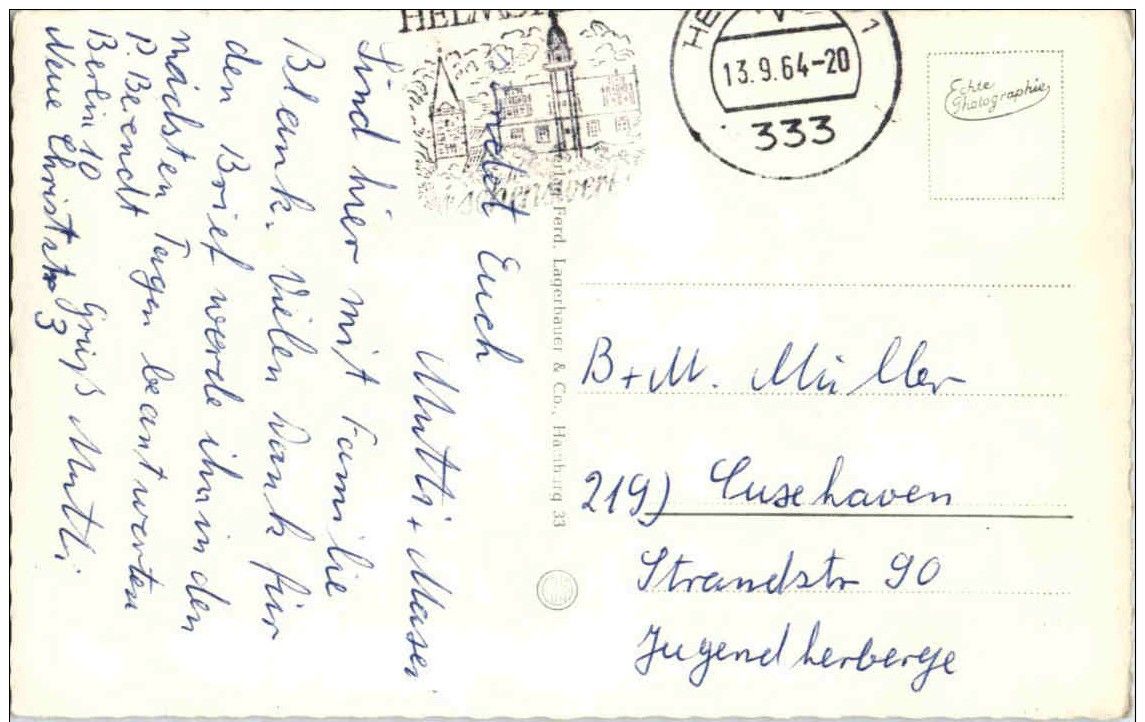 HELMST
HE
1
13.9.64-20
333
sehenswert
Echte
Photographie
Verlag Ferd. Lagerbauer & Co., Hamburg 33
Sind hier mit Familie
Blank. Vielen Dank für
den Brief werde ihn in den
nächsten Tagen beantworten
Gruß Mutti
P. Berendt
Berlin 10
Neue Christstr 3
Euch
Mutti +
B + M. Müller
219) Cuxehaven
Strandstr 90
Jugendherberge